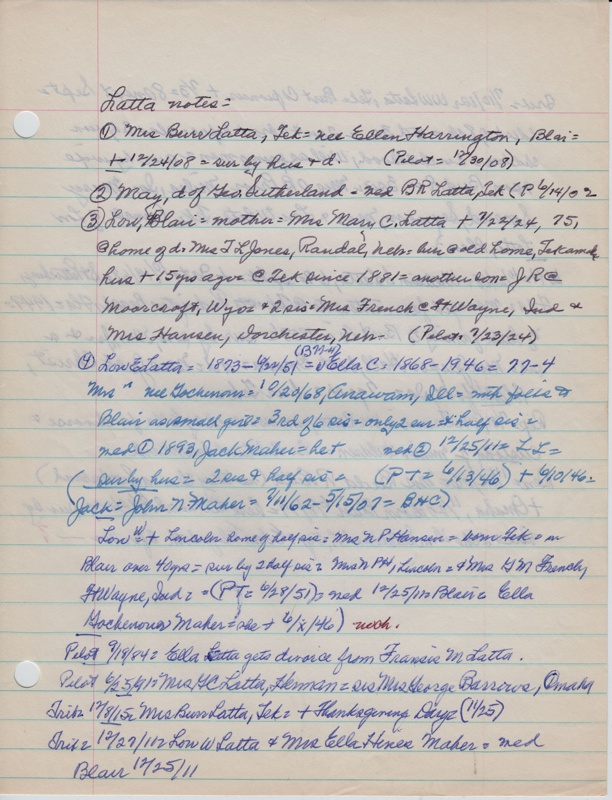 Latta notes =
① Mrs Burr Latta, Tek = nee Ellen Harrington, Blai =
+ 12/24/08 = sur by hus + d. (Pilot = 12/30/08)
② May, d of Geo Sutherland = med BR Latta, Tek (P 6/14/02
③ Low, Blair = mother = Mrs Mary C. Latta + 7/22/24, 75,
@ home of d = Mrs T L Jones, Randal, Neb = bur @ old home, Tekamah
hus + 15 yrs ago = @ Tek since 1881 = another son = J R @
Moorcroft, Wyo = + 2 sis = Mrs French @ Ft Wayne, Ind +
Mrs Hansen, Dorchester, Neb = (Pilot = 7/23/24)
(B77-4)
④ Low E Latta = 1873 - 6/22/51 = Ella C = 1868 - 1946 = 77-4
Mrs " nee Gochenour = 10/20/68, Ill = with folks to
Blair as small girl = 3rd of 6 sis = only 2 sur + half sis =
med ① 1893, Jack Maher = he + med ② 12/25/11 = L L =
(sur by hus = 2 sis + half sis = (P T = 6/13/46) + 6/10/46 =
Jack = John N Maher = 9/11/62 - 5/15/07 = B+C)
Low W = + Lincoln home of half sis = Mrs N P Hansen = born Tek = in
Blair over 40 yrs = sur by 2 half sis = Mrs N PH, Lincoln = + Mrs G M French,
Ft Wayne, Ind = = (PT = 6/28/51) = med 12/25/11 = Blair = Ella
Gochenour Maher = she + 6/x/46) noch.
Pilot 9/18/84 = Ella Latta gets divorce from Fransis M Latta.
Pilot 6/23/41 = Mrs H C Latta, Herman = sis Mrs George Barrows, Omaha
Trib = 12/8/15 = Mrs Burr Latta, Tek = + Thanksgiving Day = (11/25)
Trib = 12/27/11 = Low W Latta + Mrs Ella Hines Maher = med
Blair 12/25/11